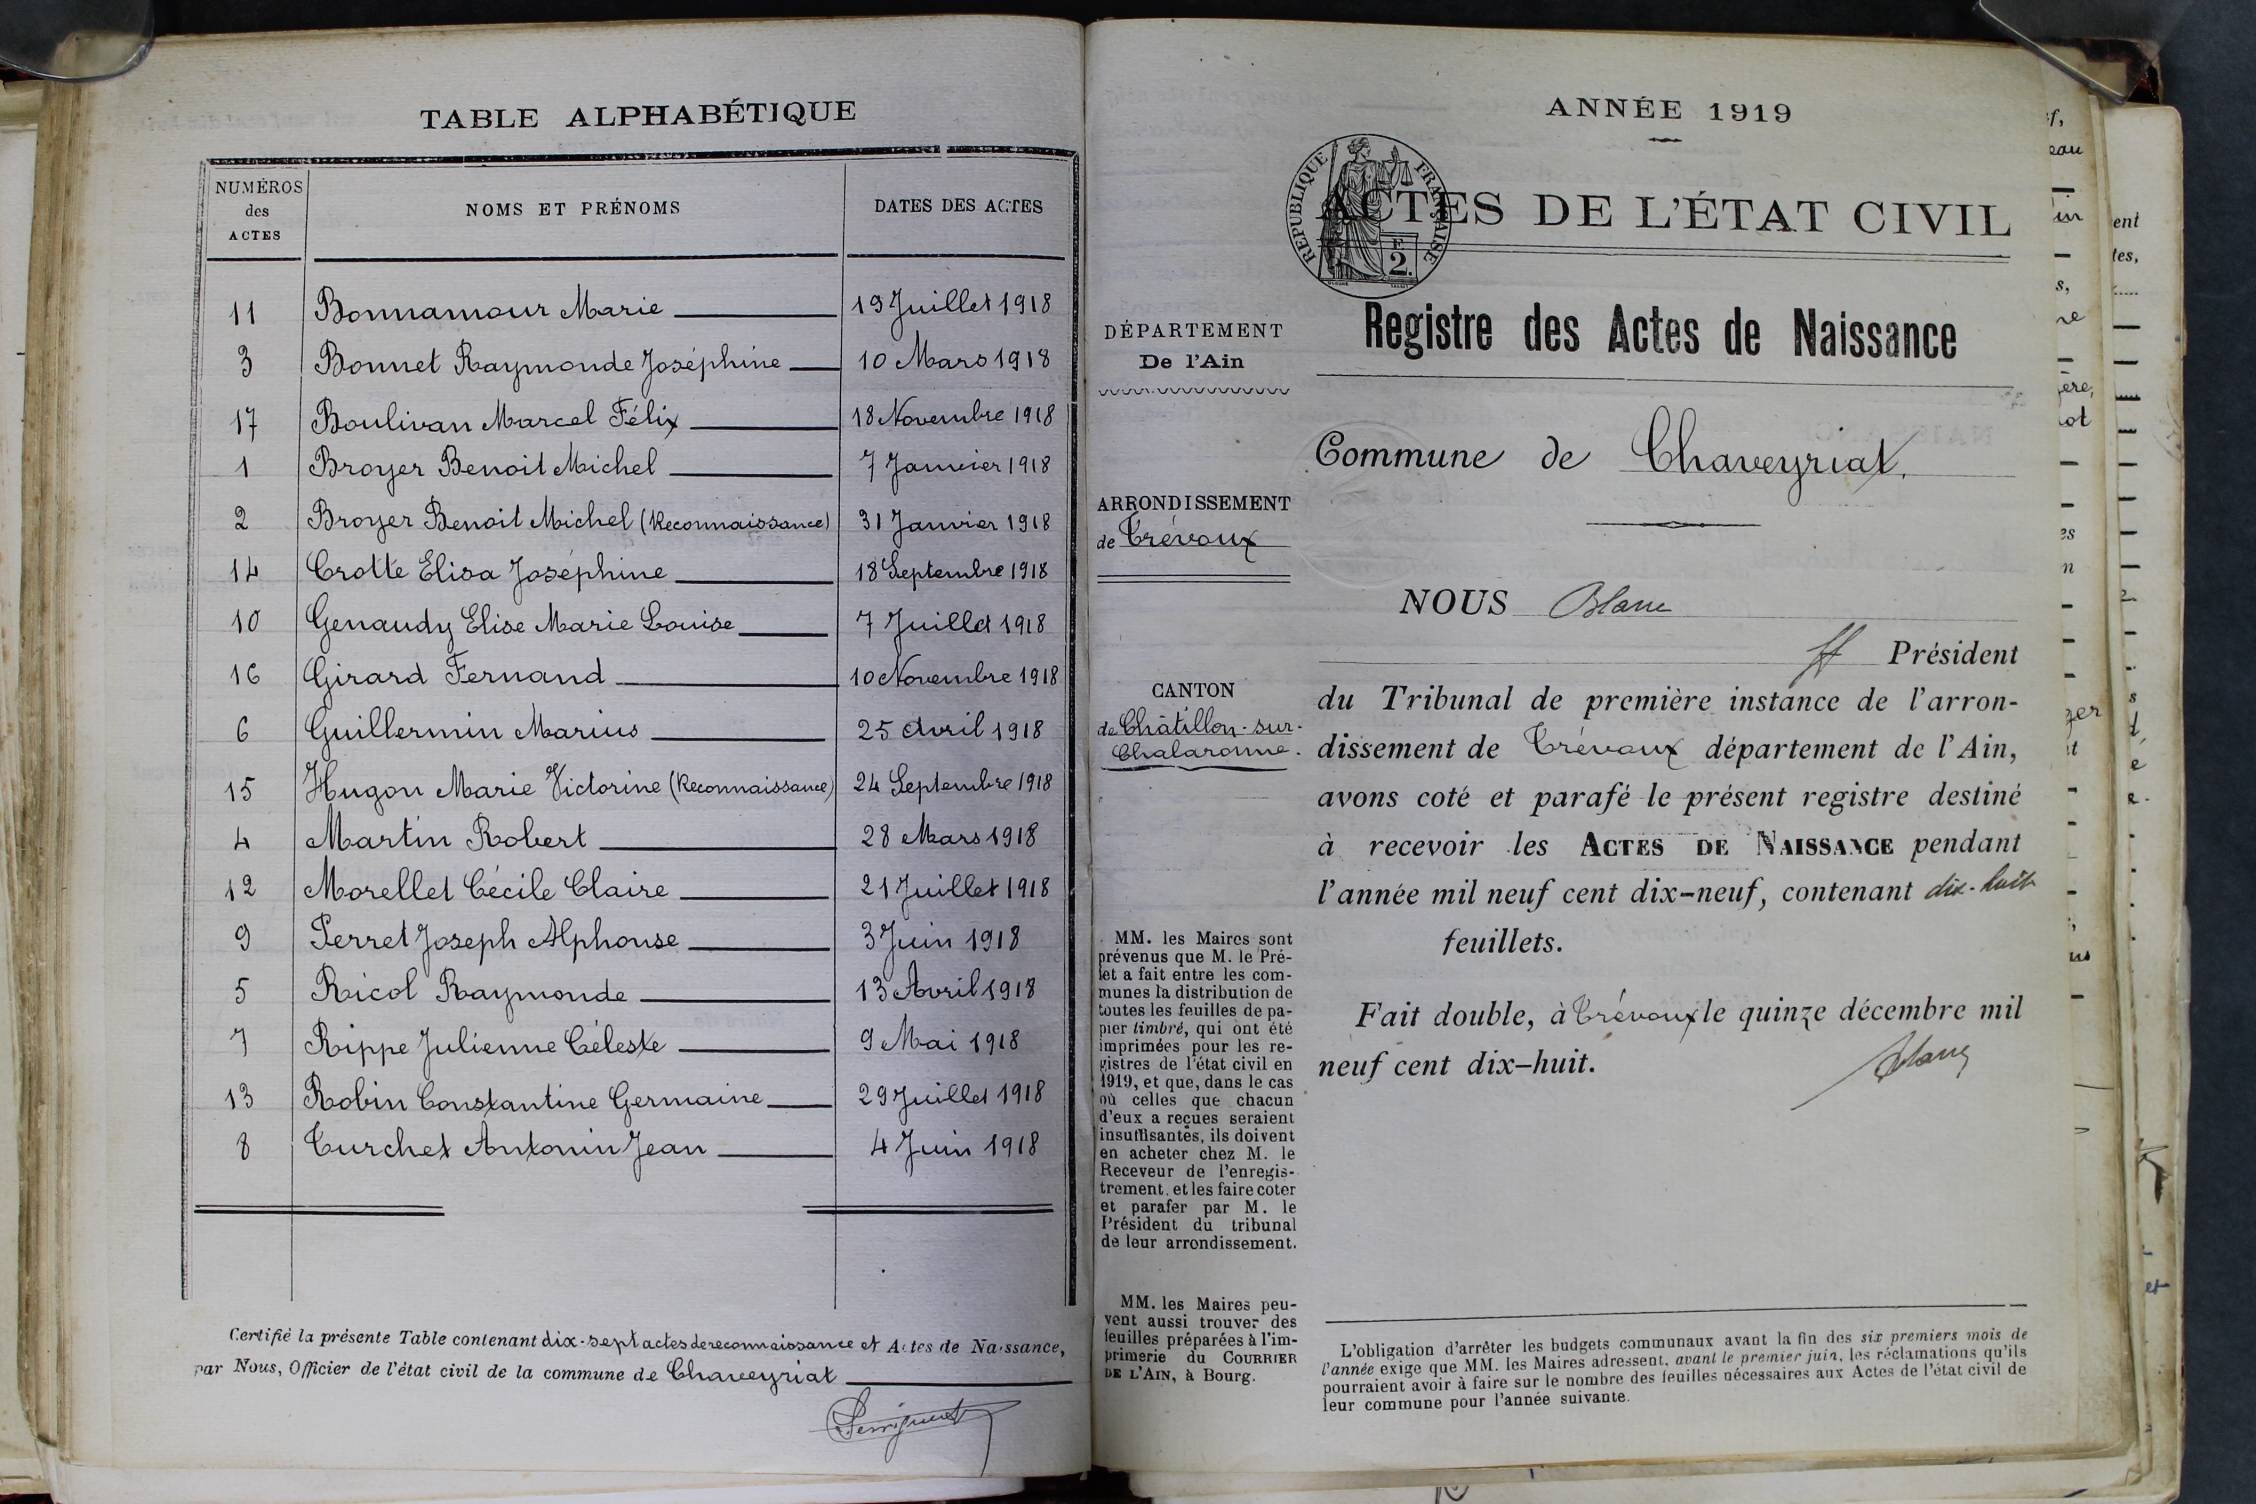 TABLE ALPHABÉTIQUE
NUMÉROS des ACTES NOMS ET PRÉNOMS DATES DES ACTES
11 Bonnamour Marie 19 Juillet 1918
3 Bonnet Raymonde Joséphine 10 Mars 1918
17 Boulivan Marcel Félix 18 Novembre 1918
1 Broyer Benoit Michel 7 Janvier 1918
2 Broyer Benoit Michel (Reconnaissance) 31 Janvier 1918
14 Crotte Elisa Joséphine 18 Septembre 1918
10 Genaudy Elise Marie Louise 7 Juillet 1918
16 Girard Fernand 10 Novembre 1918
6 Guillermin Marius 25 Avril 1918
15 Hugon Marie Victorine (Reconnaissance) 24 Septembre 1918
4 Martin Robert 28 Mars 1918
12 Morellet Cécile Claire 21 Juillet 1918
9 Perret Joseph Alphonse 3 Juin 1918
5 Ricol Raymonde 13 Avril 1918
7 Rippe Julienne Céleste 9 Mai 1918
13 Robin Constantine Germaine 29 Juillet 1918
8 Turchet Antonin Jean 4 Juin 1918
Certifié la présente Table contenant dix-sept actes de reconnaissance et Actes de Naissance,
par Nous, Officier de l'état civil de la commune de Chaveyriat
ANNÉE 1919
RÉPUBLIQUE FRANÇAISE
F
2.
ACTES DE L'ÉTAT CIVIL
DÉPARTEMENT
De l'Ain
ARRONDISSEMENT
de Trévoux
CANTON
de Châtillon-sur-
Chalaronne.
MM. les Maires sont
prévenus que M. le Pré-
fet a fait entre les com-
munes la distribution de
toutes les feuilles de pa-
pier timbré, qui ont été
imprimées pour les re-
gistres de l'état civil en
1919, et que, dans le cas
où celles que chacun
d'eux a reçues seraient
insuffisantes, ils doivent
en acheter chez M. le
Receveur de l'enregis-
trement, et les faire coter
et parafer par M. le
Président du tribunal
de leur arrondissement.
MM. les Maires peu-
vent aussi trouver des
feuilles préparées à l'im-
primerie du COURRIER
DE L'AIN, à Bourg.
Registre des Actes de Naissance
Commune de Chaveyriat.
NOUS Blanc
ff Président
du Tribunal de première instance de l'arron-
dissement de Trévoux département de l'Ain,
avons coté et parafé le présent registre destiné
à recevoir les ACTES DE NAISSANCE pendant
l'année mil neuf cent dix-neuf, contenant dix-huit
feuillets.
Fait double, à Trévoux le quinze décembre mil
neuf cent dix-huit.
Blanc
L'obligation d'arrêter les budgets communaux avant la fin des six premiers mois de
l'année exige que MM. les Maires adressent, avant le premier juin, les réclamations qu'ils
pourraient avoir à faire sur le nombre des feuilles nécessaires aux Actes de l'état civil de
leur commune pour l'année suivante.